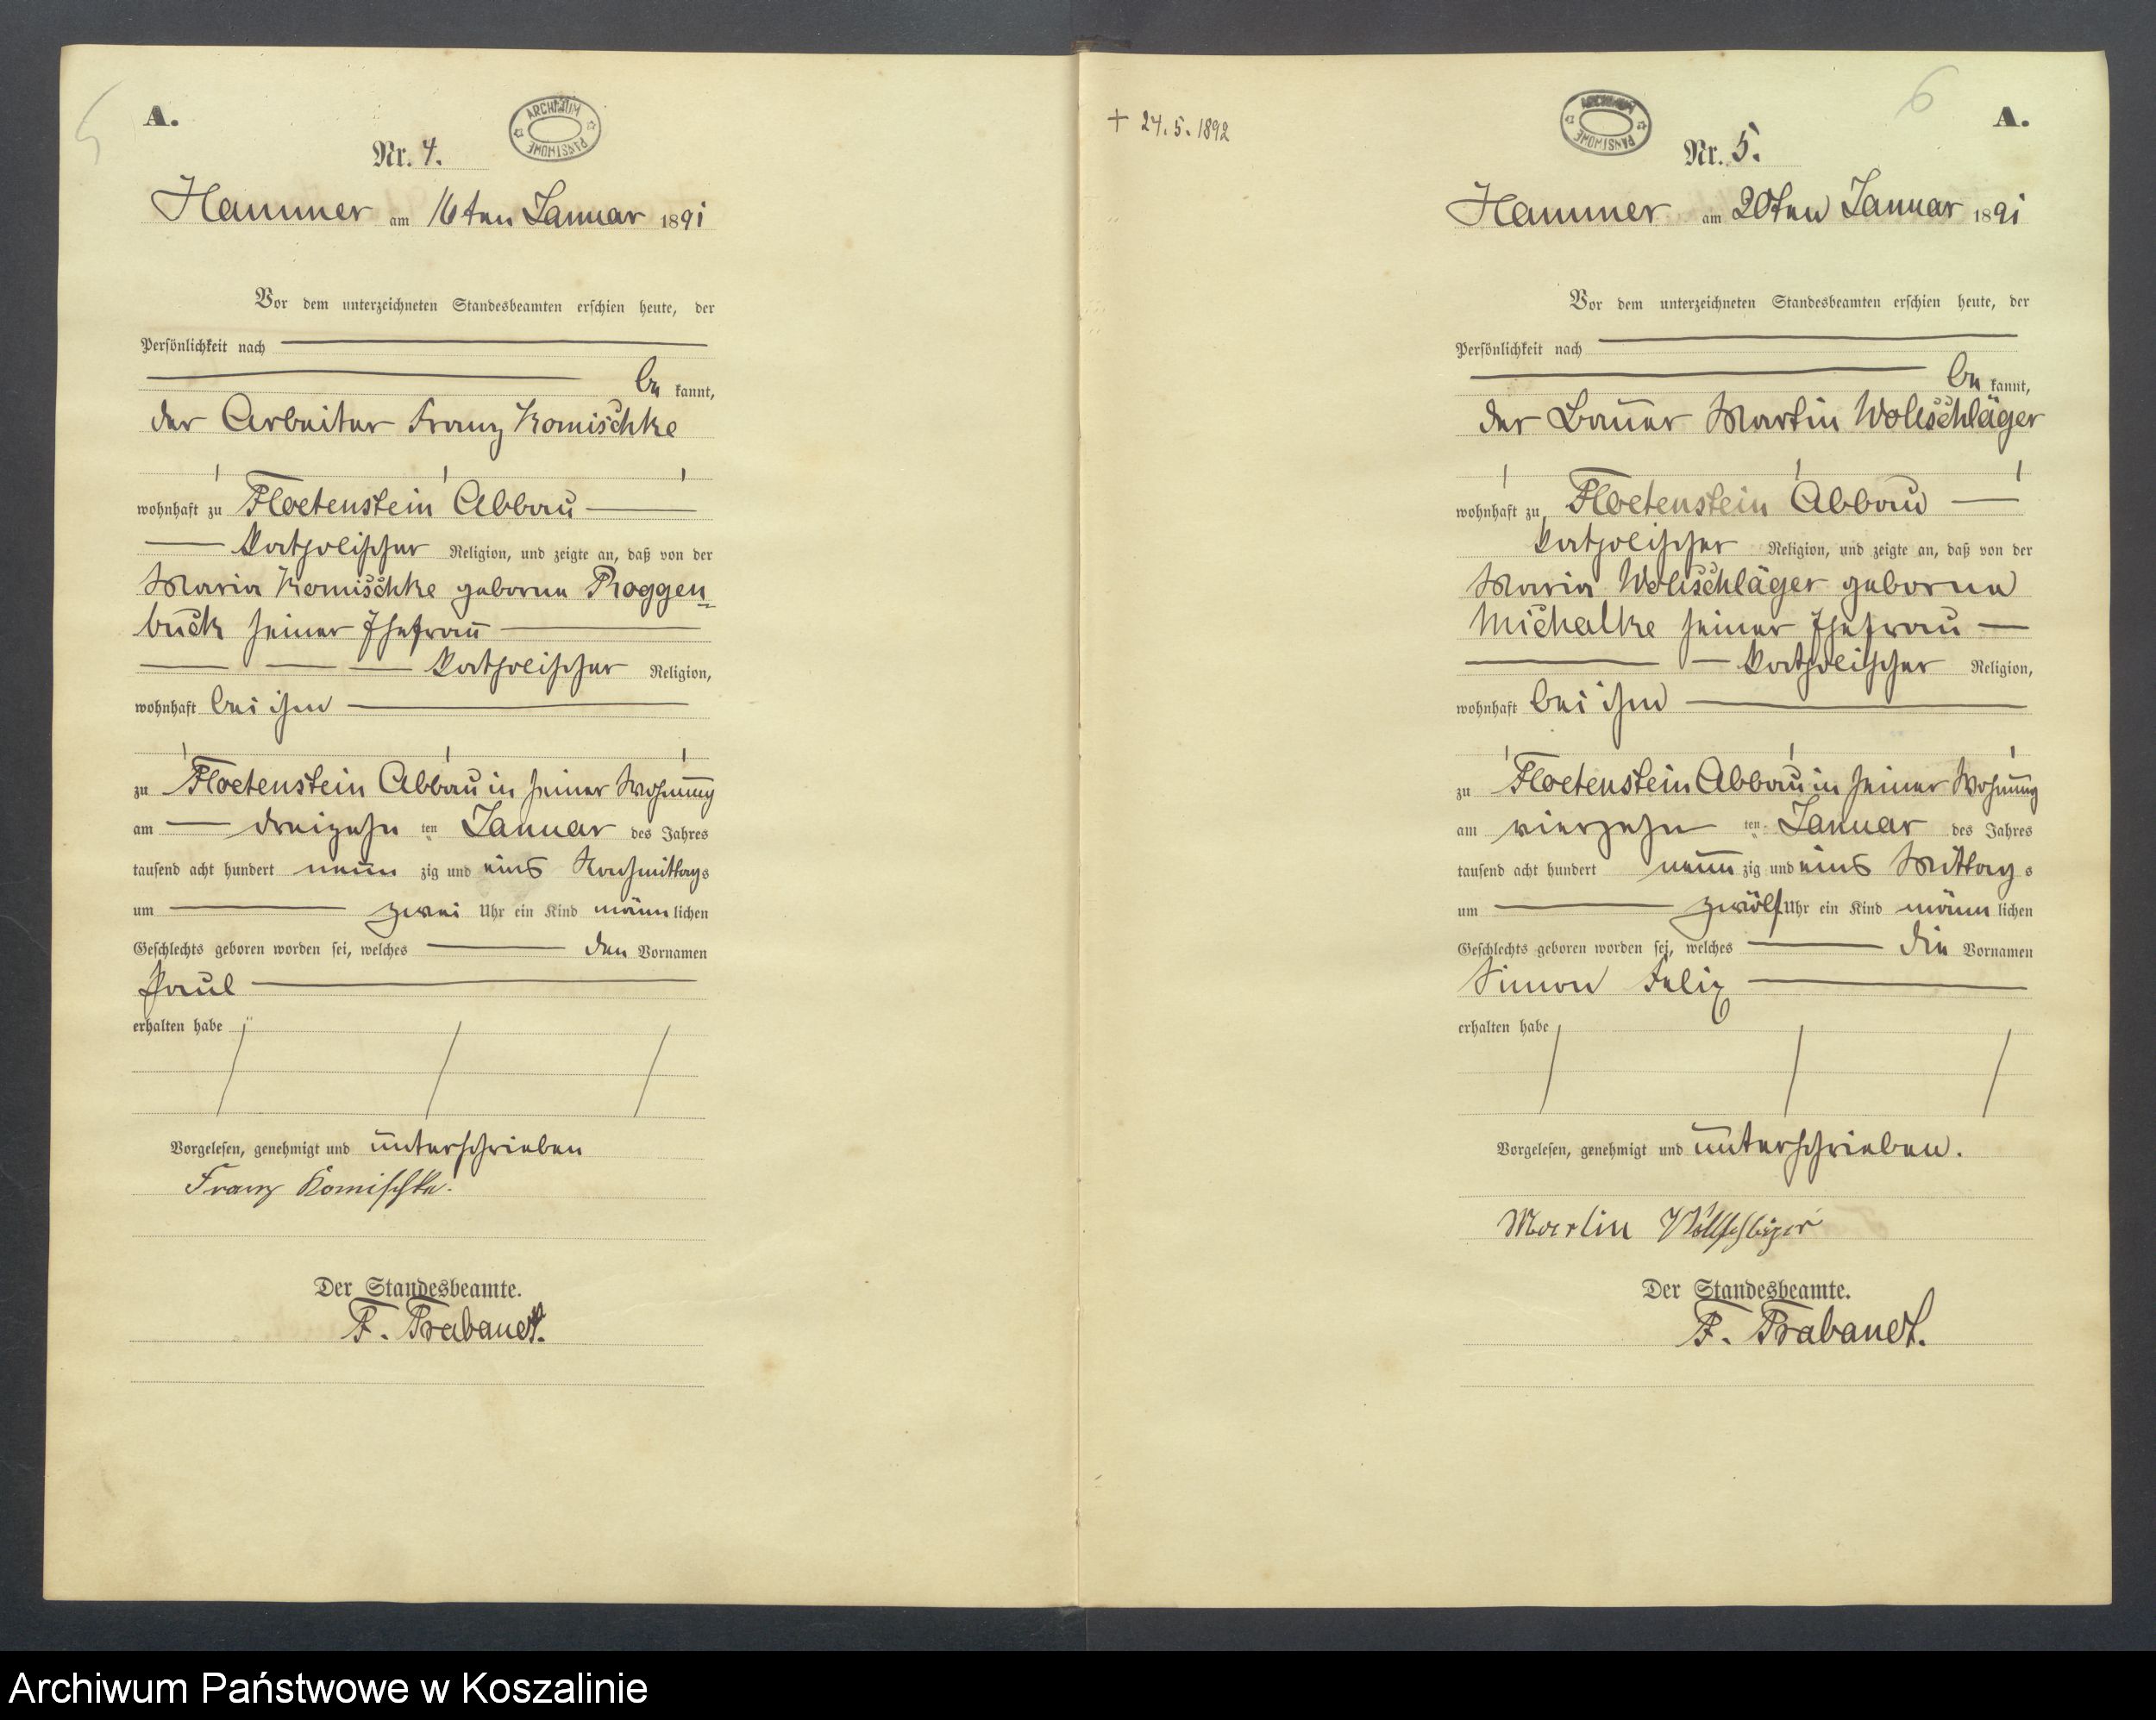 5
A.
ARCHIWUM PAŃSTWOWE
Nr. 4.
Hammer am 16ten Januar 1891
Vor dem unterzeichneten Standesbeamten erschien heute, der
Persönlichkeit nach
be kannt,
der Arbeiter Franz Komischke
wohnhaft zu Floetenstein Abbau
katholischer Religion, und zeigte an, daß von der
Maria Komischke geborne Roggen=
buck seiner Ehefrau
katholischer Religion,
wohnhaft bei ihm
zu Floetenstein Abbau in seiner Wohnung
am dreizehn ten Januar des Jahres
tausend acht hundert neun zig und eins Nachmittags
um zwei Uhr ein Kind männ lichen
Geschlechts geboren worden sei, welches den Vornamen
Paul
erhalten habe
Vorgelesen, genehmigt und unterschrieben
Franz Komischke.
Der Standesbeamte.
F. Trabandt.
+ 24.5.1892
ARCHIWUM PAŃSTWOWE
6
A.
Nr. 5.
Hammer am 20ten Januar 1891
Vor dem unterzeichneten Standesbeamten erschien heute, der
Persönlichkeit nach
be kannt,
der Bauer Martin Wollschläger
wohnhaft zu Floetenstein Abbau
katholischer Religion, und zeigte an, daß von der
Maria Wollschläger geborne
Michalke seiner Ehefrau
katholischer Religion,
wohnhaft bei ihm
zu Floetenstein Abbau in seiner Wohnung
am vierzehn ten Januar des Jahres
tausend acht hundert neun zig und eins Mittags
um zwölf Uhr ein Kind männ lichen
Geschlechts geboren worden sei, welches die Vornamen
Simon Felix
erhalten habe
Vorgelesen, genehmigt und unterschrieben.
Martin Wollschläger
Der Standesbeamte.
F. Trabandt.
Archiwum Państwowe w Koszalinie